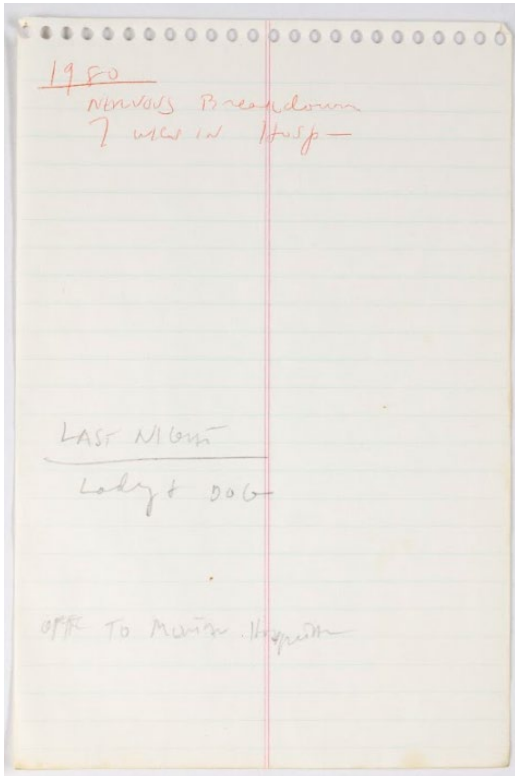 1980
Nervous Breakdown
7 wks in Hosp —
LAST NIGHT
Lady + DOG
OFF TO Hospital